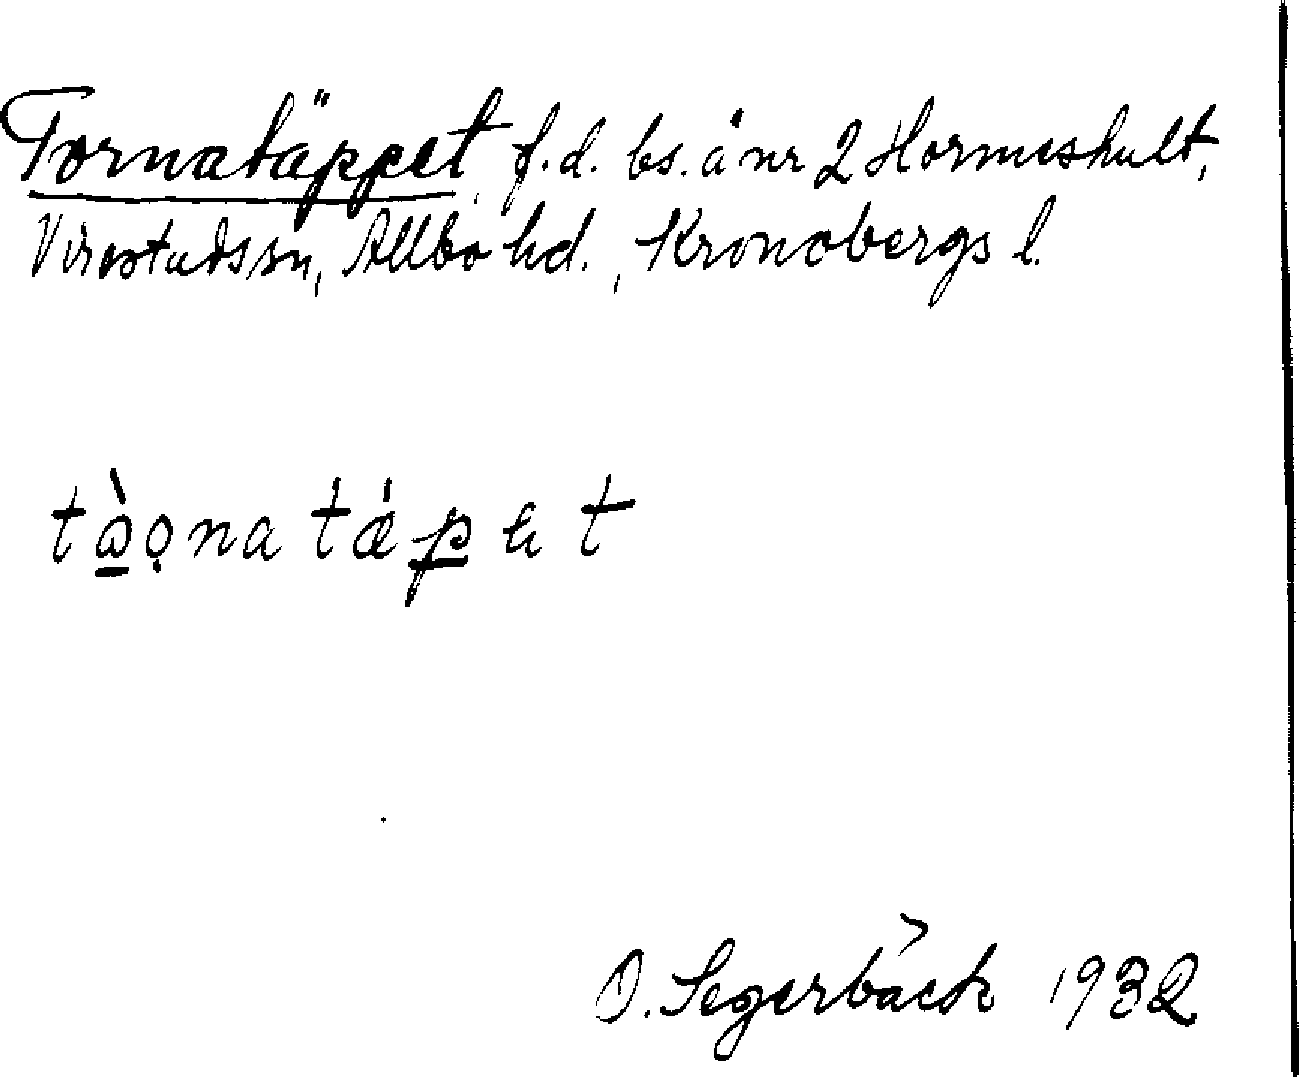 Tornatäppet, f.d. bs. å nr 2 Hormeshult,
Virestads sn, Allbo hd., Kronobergs l.
tàọna tǽpet
O. Segerbäck 1932